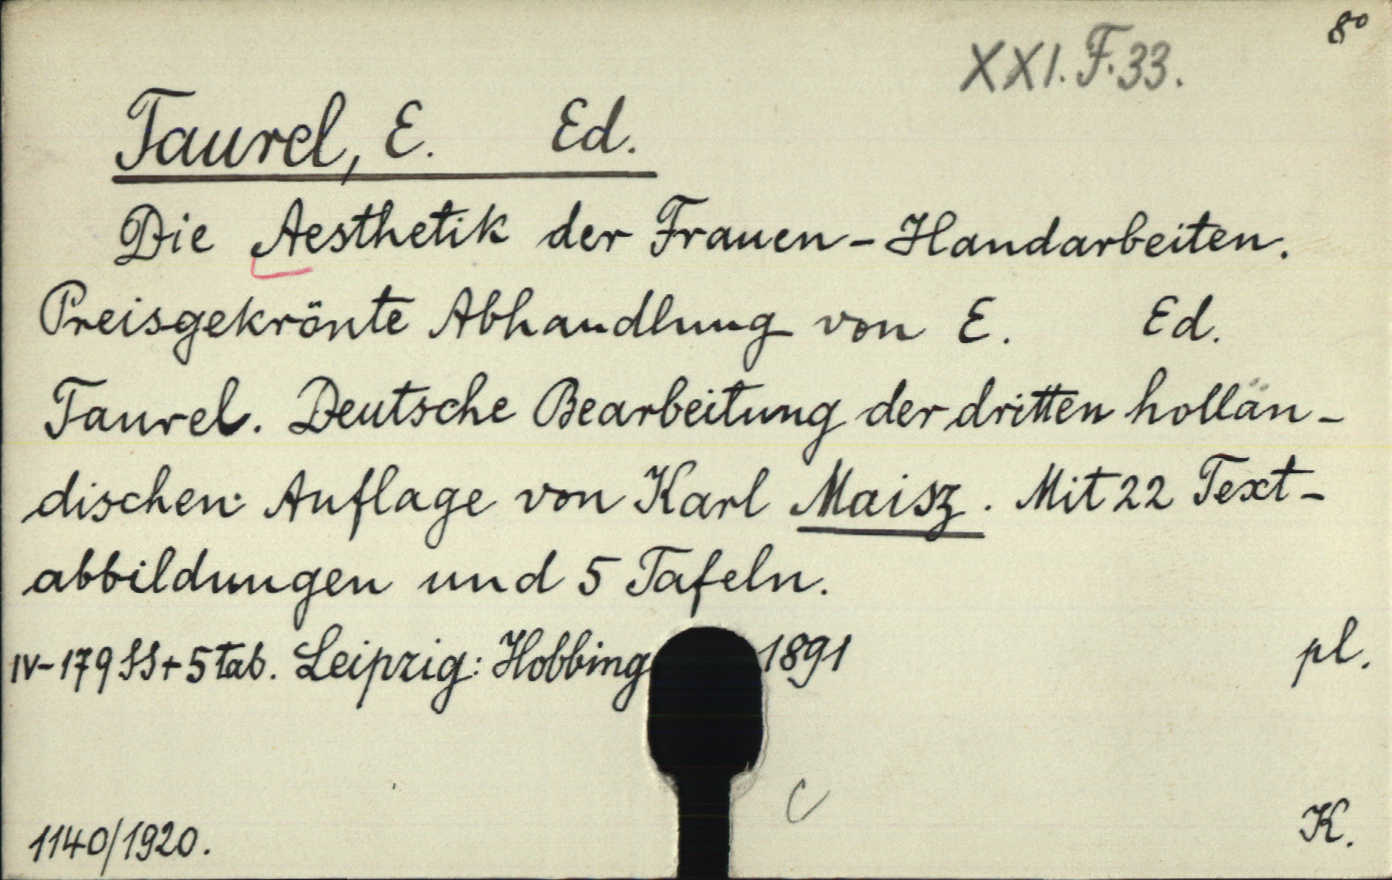 8°
XXI. F. 33.
Taurel, E. Ed.
Die Aesthetik der Frauen-Handarbeiten.
Preisgekrönte Abhandlung von E. Ed.
Taurel. Deutsche Bearbeitung der dritten hollän-
dischen Auflage von Karl Maisz. Mit 22 Text-
abbildungen und 5 Tafeln.
IV-179 SS+5 tab. Leipzig: Hobbing 1891 pl.
C
1140/1920. K.